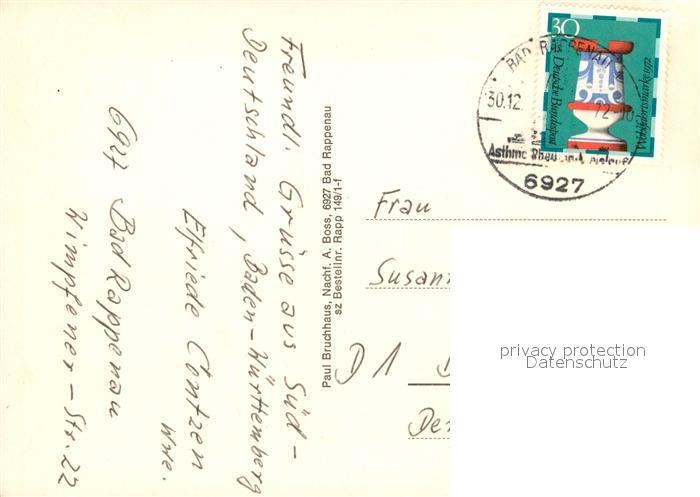 freundl. Grüsse aus Süd-
Deutschland, Baden-Württemberg
Elfriede Contzen
Wwe.
6927 Bad Rappenau
Wimpfener-Str. 22
Paul Bruchhaus, Nachf. A. Boss, 6927 Bad Rappenau
sz Bestellnr. Rapp 149/1-f
30
Deutsche Bundespost
Wohlfahrtsmarke
BAD RAPPENAU
30.12. 72-10
Asthma Rheuma
6927
Frau
Susann
D 1
De
privacy protection
Datenschutz